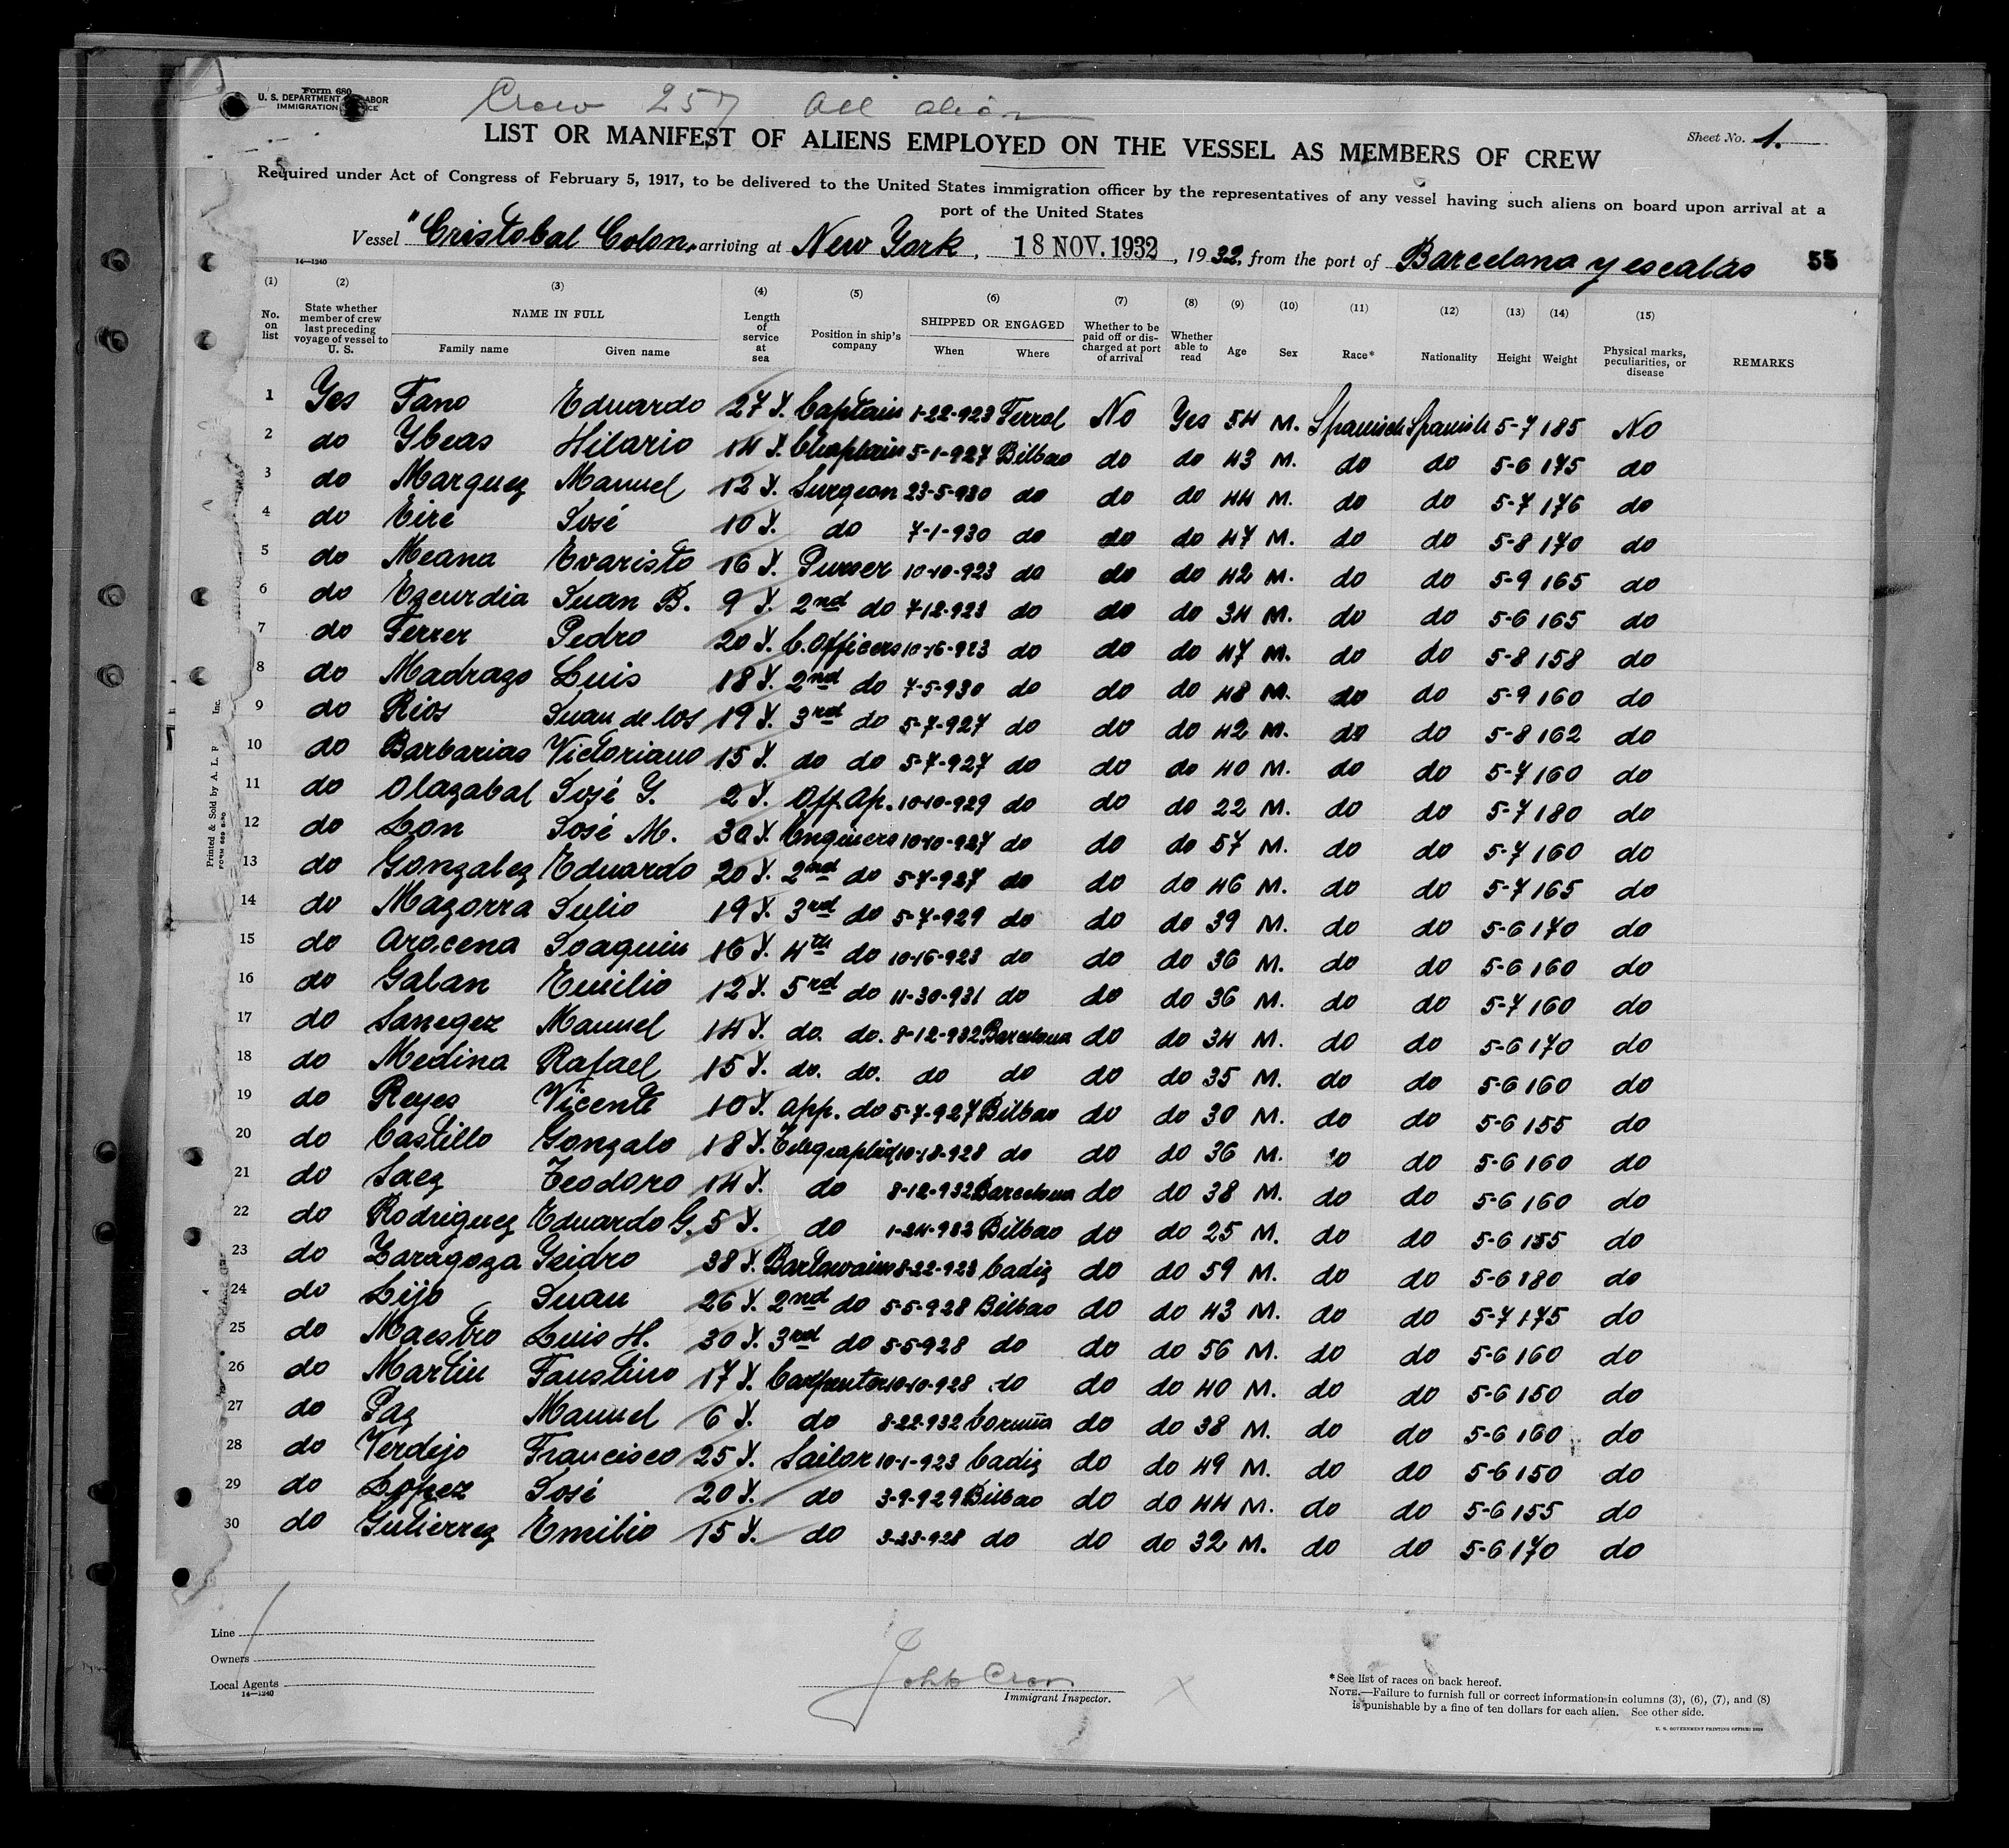 Form 680
U. S. DEPARTMENT OF LABOR
IMMIGRATION SERVICE
Crew 257 All alien
LIST OR MANIFEST OF ALIENS EMPLOYED ON THE VESSEL AS MEMBERS OF CREW
Sheet No. 1.
Required under Act of Congress of February 5, 1917, to be delivered to the United States immigration officer by the representatives of any vessel having such aliens on board upon arrival at a
port of the United States
Vessel "Cristobal Colon" arriving at New York, 18 NOV. 1932, 1932, from the port of Barcelona y escalas 55
14—1240
(1) (2) (3) (4) (5) (6) (7) (8) (9) (10) (11) (12) (13) (14) (15)
No. on list State whether member of crew last preceding voyage of vessel to U. S. NAME IN FULL Family name Given name Length of service at sea Position in ship's company SHIPPED OR ENGAGED When Where Whether to be paid off or discharged at port of arrival Whether able to read Age Sex Race* Nationality Height Weight Physical marks, peculiarities, or disease REMARKS
1 Yes Fano Eduardo 27 Y. Captain 1-22-923 Ferrol No Yes 54 M. Spanish Spanish 5-7 185 No
2 do Ybeas Hilario 14 Y. Chaptain 5-1-927 Bilbao do do 43 M. do do 5-6 175 do
3 do Marquez Manuel 12 Y. Surgeon 23-5-930 do do do 44 M. do do 5-7 176 do
4 do Eire José 10 Y. do 7-1-930 do do do 47 M. do do 5-8 170 do
5 do Meana Evaristo 16 Y. Purser 10-10-923 do do do 42 M. do do 5-9 165 do
6 do Egurdia Juan B. 9 Y. 2nd do 7-12-923 do do do 34 M. do do 5-6 165 do
7 do Ferrer Pedro 20 Y. C. Officers 10-16-923 do do do 47 M. do do 5-8 158 do
8 do Madrazo Luis 18 Y. 2nd do 7-5-930 do do do 48 M. do do 5-9 160 do
9 do Rios Juan de los 19 Y. 3rd do 5-7-927 do do do 42 M. do do 5-8 162 do
10 do Barbarias Victoriano 15 Y. do do 5-7-927 do do do 40 M. do do 5-7 160 do
11 do Olazabal José Y. 2 Y. Off. Ap. 10-10-929 do do do 22 M. do do 5-7 180 do
12 do Lon José M. 30 Y. Engineers 10-10-927 do do do 57 M. do do 5-7 160 do
13 do Gonzalez Eduardo 20 Y. 2nd do 5-7-927 do do do 46 M. do do 5-7 165 do
14 do Mazorra Julio 19 Y. 3rd do 5-7-929 do do do 39 M. do do 5-6 170 do
15 do Arocena Joaquin 16 Y. 4th do 10-16-923 do do do 36 M. do do 5-6 160 do
16 do Galan Emilio 12 Y. 5rd do 11-30-931 do do do 36 M. do do 5-7 160 do
17 do Sanegez Manuel 14 Y. do. do. 8-12-932 Barcelona do do 34 M. do do 5-6 170 do
18 do Medina Rafael 15 Y. do. do. do do do do 35 M. do do 5-6 160 do
19 do Reyes Vicente 10 Y. App. do 5-7-927 Bilbao do do 30 M. do do 5-6 155 do
20 do Castillo Gonzalo 18 Y. Telegraphist 10-18-928 do do do 36 M. do do 5-6 160 do
21 do Saez Teodoro 14 Y. do 8-12-932 Barcelona do do 38 M. do do 5-6 160 do
22 do Rodriguez Eduardo G. 5 Y. do 1-24-932 Bilbao do do 25 M. do do 5-6 155 do
23 do Zaragoza Isidro 38 Y. Bartswain 8-22-923 Cadiz do do 59 M. do do 5-6 180 do
24 do Lijo Juan 26 Y. 2nd do 5-5-928 Bilbao do do 43 M. do do 5-7 175 do
25 do Maestro Luis H. 30 Y. 3rd do 5-5-928 do do do 56 M. do do 5-6 160 do
26 do Martin Faustino 17 Y. Carpenter 10-10-928 do do do 40 M. do do 5-6 150 do
27 do Paz Manuel 6 Y. do 8-22-932 Coruña do do 38 M. do do 5-6 160 do
28 do Verdejo Francisco 25 Y. Sailor 10-1-923 Cadiz do do 49 M. do do 5-6 150 do
29 do Lopez José 20 Y. do 3-9-929 Bilbao do do 44 M. do do 5-6 155 do
30 do Gutierrez Emilio 15 Y. do 3-23-928 do do do 32 M. do do 5-6 170 do
Printed & Sold by A. L. P Inc.
Line
Owners
Local Agents
14—1240
John
Immigrant Inspector.
*See list of races on back hereof.
NOTE.—Failure to furnish full or correct information in columns (3), (6), (7), and (8)
is punishable by a fine of ten dollars for each alien. See other side.
U. S. GOVERNMENT PRINTING OFFICE: 1929